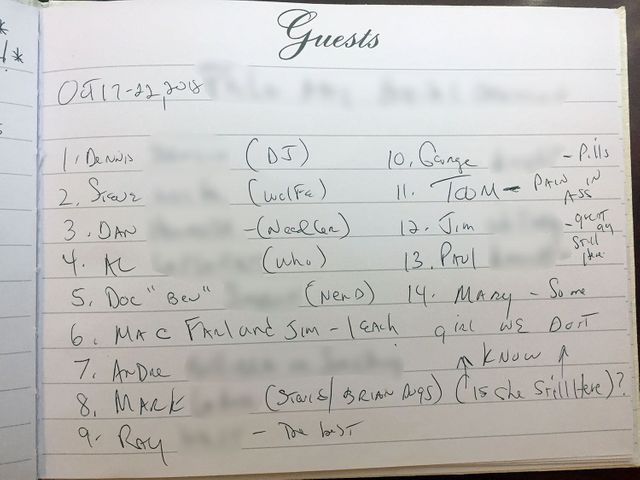 Guests
Oct 17-22, 2018
1. Dennis (DJ)
2. Steve
3. DAN
4. AL (Who)
5. Doc "Ben" (NerD)
6. MAC FARland Jim - leach
7. ANDRE
8. MARK
9. RAY - The best
10. George - Pills
11. TOOM - PAIN IN ASS
12. Jim - quiet guy still here
13. PAUL
14. MARY - Some girl we DON'T KNOW
(Is she Still Here)?